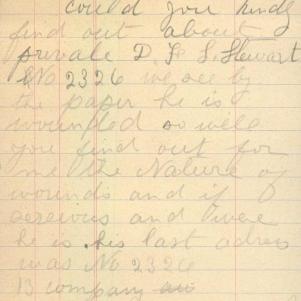 could you kindly
find out about
private D. F. S. Stewart
No 2326 we see by
the paper he is
wounded so will
you find out for
me the Nature of
wounds and if
sereious and where
he is his last adress
was No 2326
B company